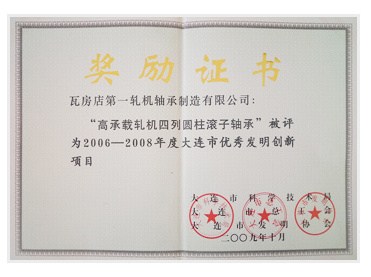 奖励证书
瓦房店第一轧机轴承制造有限公司：
“高承载轧机四列圆柱滚子轴承”被评
为2006—2008年度大连市优秀发明创新
项目
大连市科学技术局
大连市总工会
大连市发明协会
二〇〇九年十月